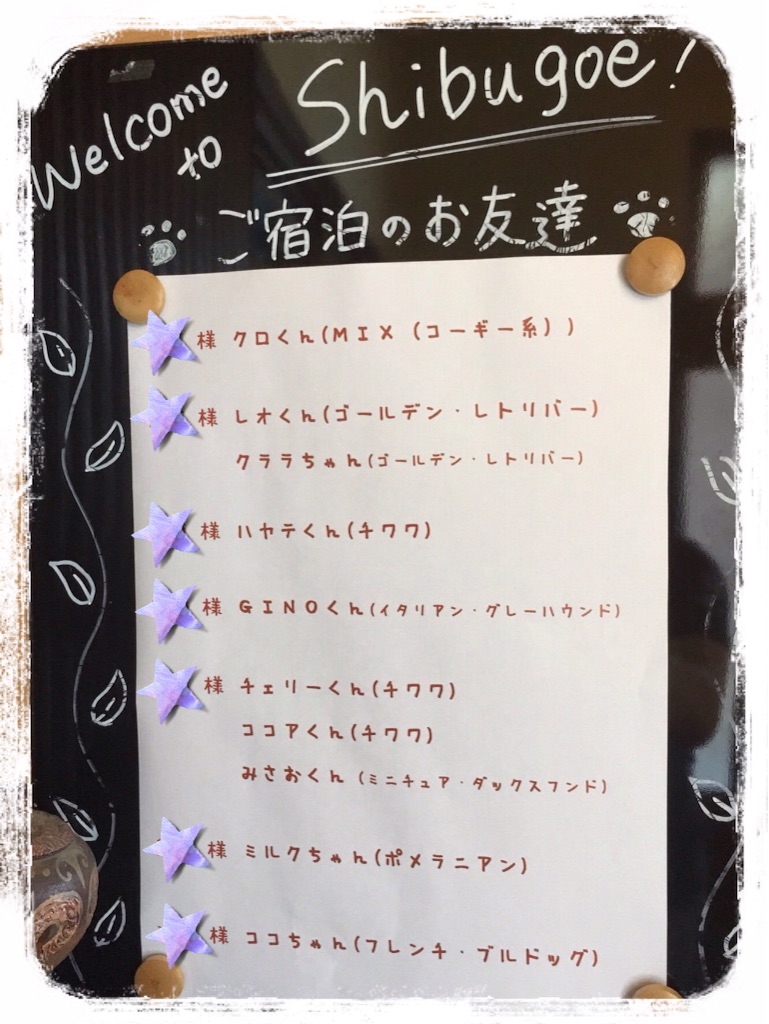 Welcome to Shibugoe!
ご宿泊のお友達
様 クロくん(MIX (コーギー系))
様 レオくん(ゴールデン・レトリバー)
クララちゃん(ゴールデン・レトリバー)
様 ハヤテくん(チワワ)
様 GINOくん(イタリアン・グレーハウンド)
様 チェリーくん(チワワ)
ココアくん(チワワ)
みさおくん (ミニチュア・ダックスフンド)
様 ミルクちゃん(ポメラニアン)
様 ココちゃん(フレンチ・ブルドッグ)